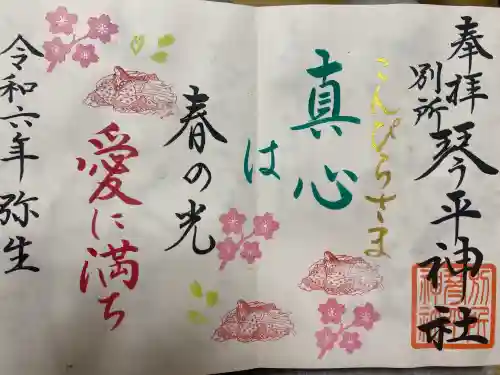 奉拝
別所琴平神社
こんぴらさま
真心
は
春の光
愛に満ち
令和六年弥生